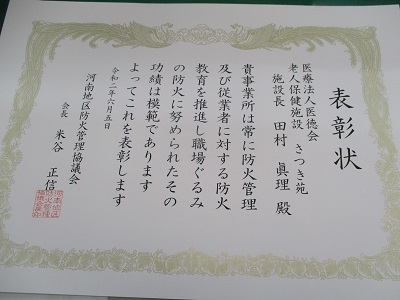 表彰状
医療法人医徳会
老人保健施設 さつき苑
施設長 田村 眞理 殿
貴事業所は常に防火管理
及び従業者に対する防火
教育を推進し職場ぐるみ
の防火に努められたその
功績は模範であります
よってこれを表彰します
令和二年六月五日
河南地区防火管理協議会
会長 米谷 正信